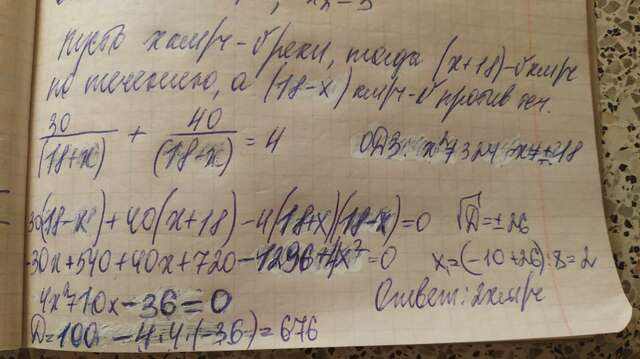 x₂=3
Пусть x км/ч - υ реки, тогда (x+18) - υ км/ч
по течению, а (18-x) км/ч - υ против теч.
30/(18+x) + 40/(18-x) = 4 ОДЗ: x²≠324 x≠±18
30(18-x)+40(x+18)-4(18+x)(18-x)=0 √D=±26
-30x+540+40x+720-1296+4x²=0 x₁=(-10+26):8=2
4x²+10x-36=0 Ответ: 2 км/ч
D=100-4·4·(-36)=676